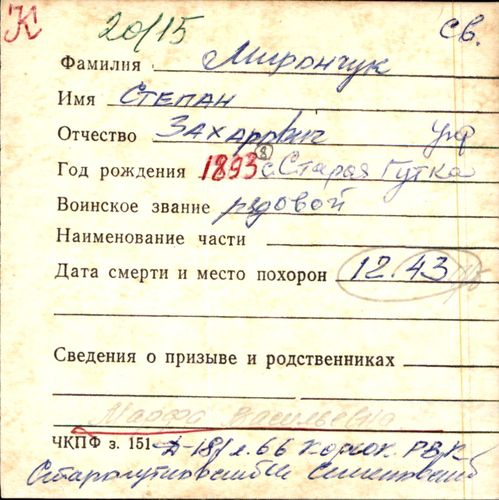 К 20/15 св.
Фамилия Мирончук
Имя Степан
Отчество Захарович укр
Год рождения 1893 (8) с. Старая Гутка
Воинское звание рядовой
Наименование части
Дата смерти и место похорон 12.43
Сведения о призыве и родственниках
Марфа Васильевна
ЧКПФ з. 151 Д-181 л. 66 РВК